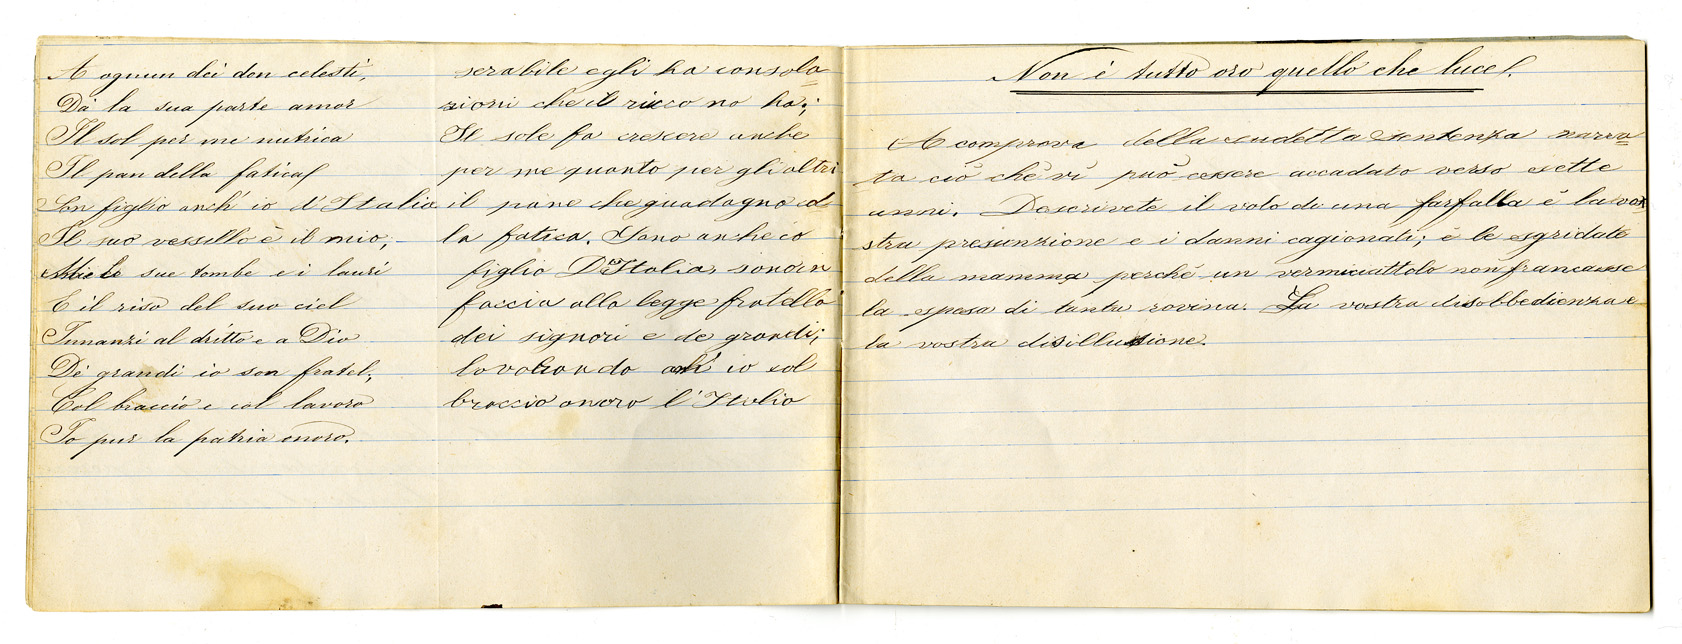 A ognun dei don celesti,
Dà la sua parte amor
Il sol per me nutrica
Il pan della fatica
Son figlio anch' io d'Italia
Il suo vessillo è il mio,
sue tombe e i lauri
E il riso del suo ciel
Innanzi al dritto e a Dio
Dè grandi io son fratel,
Col braccio e col lavoro
Io pur la patria onoro.
serabile egli ha consola=
zioni che il ricco no ha;
Il sole fa crescere anche
per me quanto per gli altri
il pane che guadagno col
la fatica. Sono anche io
figlio D'Italia, sono in
faccia alla legge fratello
dei signori e de grandi;
lavorando anch' io sol
braccio onoro l'Italia
Non è tutto oro quello che luce.
A comprova della sudetta sentenza narra=
ta ciò chè vi può essere accadato verso sette
anni. Descrivete il volo di una farfalla è la vos
stra presunzione e i danni cagionati; è le sgridate
della mamma perchè un vermiciattolo non francasse
la spesa di tanta rovina. La vostra disobbedienza e
la vostra disillusione.